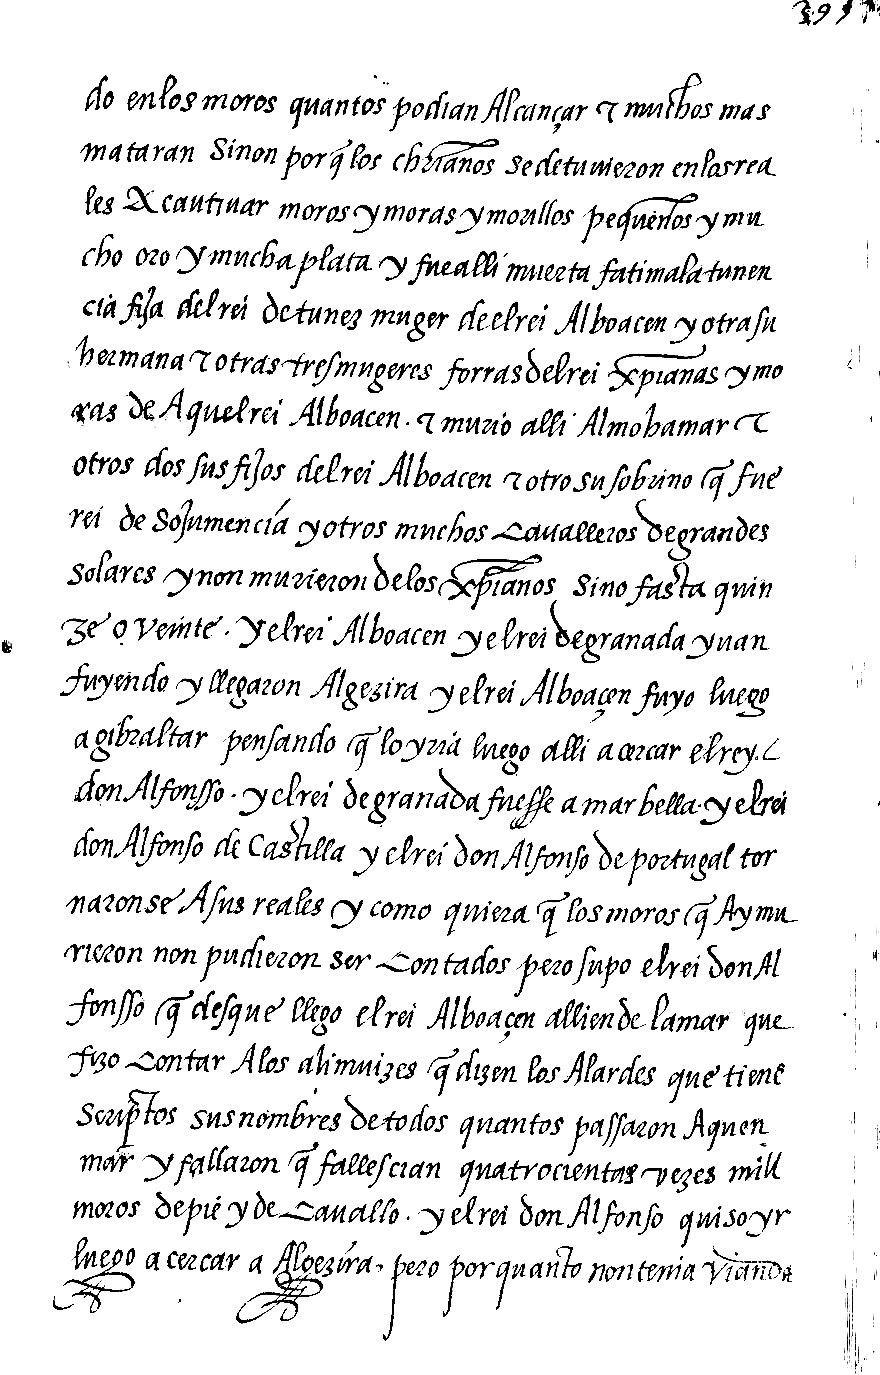 do en los moros quantos podian Alcançar τ muchos mas
mataran Sinon por q̃ los chr̃ianos se detuvieron en los rea
les A cautiuar moros y moras y morillos pequeños y mu
cho oro y mucha plata y fue alli muerta fatima la tunen
cia fija del rei de tunez muger de el rei Alboacen y otra su
hermana τ otras tres mugeres forras del rei xp̃ianas y mo
ras de Aquel rei Alboacen. τ murio alli Almohamar τ
otros dos sus fijos del rei Alboacen τ otro su sobrino q̃ fue
rei de Sojumencia y otros muchos Cavalleros de grandes
Solares y non murieron de los xp̃ianos Sino fasta quin
ze o veinte. y el rei Alboacen y el rei de granada yuan
fuyendo y llegaron Algezira y el rei Alboaçen fuyo luego
a gibraltar pensando q̃ lo yria luego alli a cercar el rey.
don Alfonsso. y el rei de granada fuesse a marbella. y el rei
don Alfonso de Castilla y el rei don Alfonso de portugal tor
naron se A sus reales y como quiera q̃ los moros q̃ Ay mu
rieron non pudieron ser Contados pero supo el rei don Al
fonsso q̃ desque llego el rei Alboaçen alliende la mar que
fizo Contar A los alimuizes q̃ dizen los Alardes que tiene
Scriptos sus nombres de todos quantos passaron Aquen
mar y fallaron q̃ fallescian quatrocientas vezes mill
moros de pie y de Cauallo. y el rei don Alfonso quiso yr
luego a cercar a Algezira. pero por quanto non tenia vianda